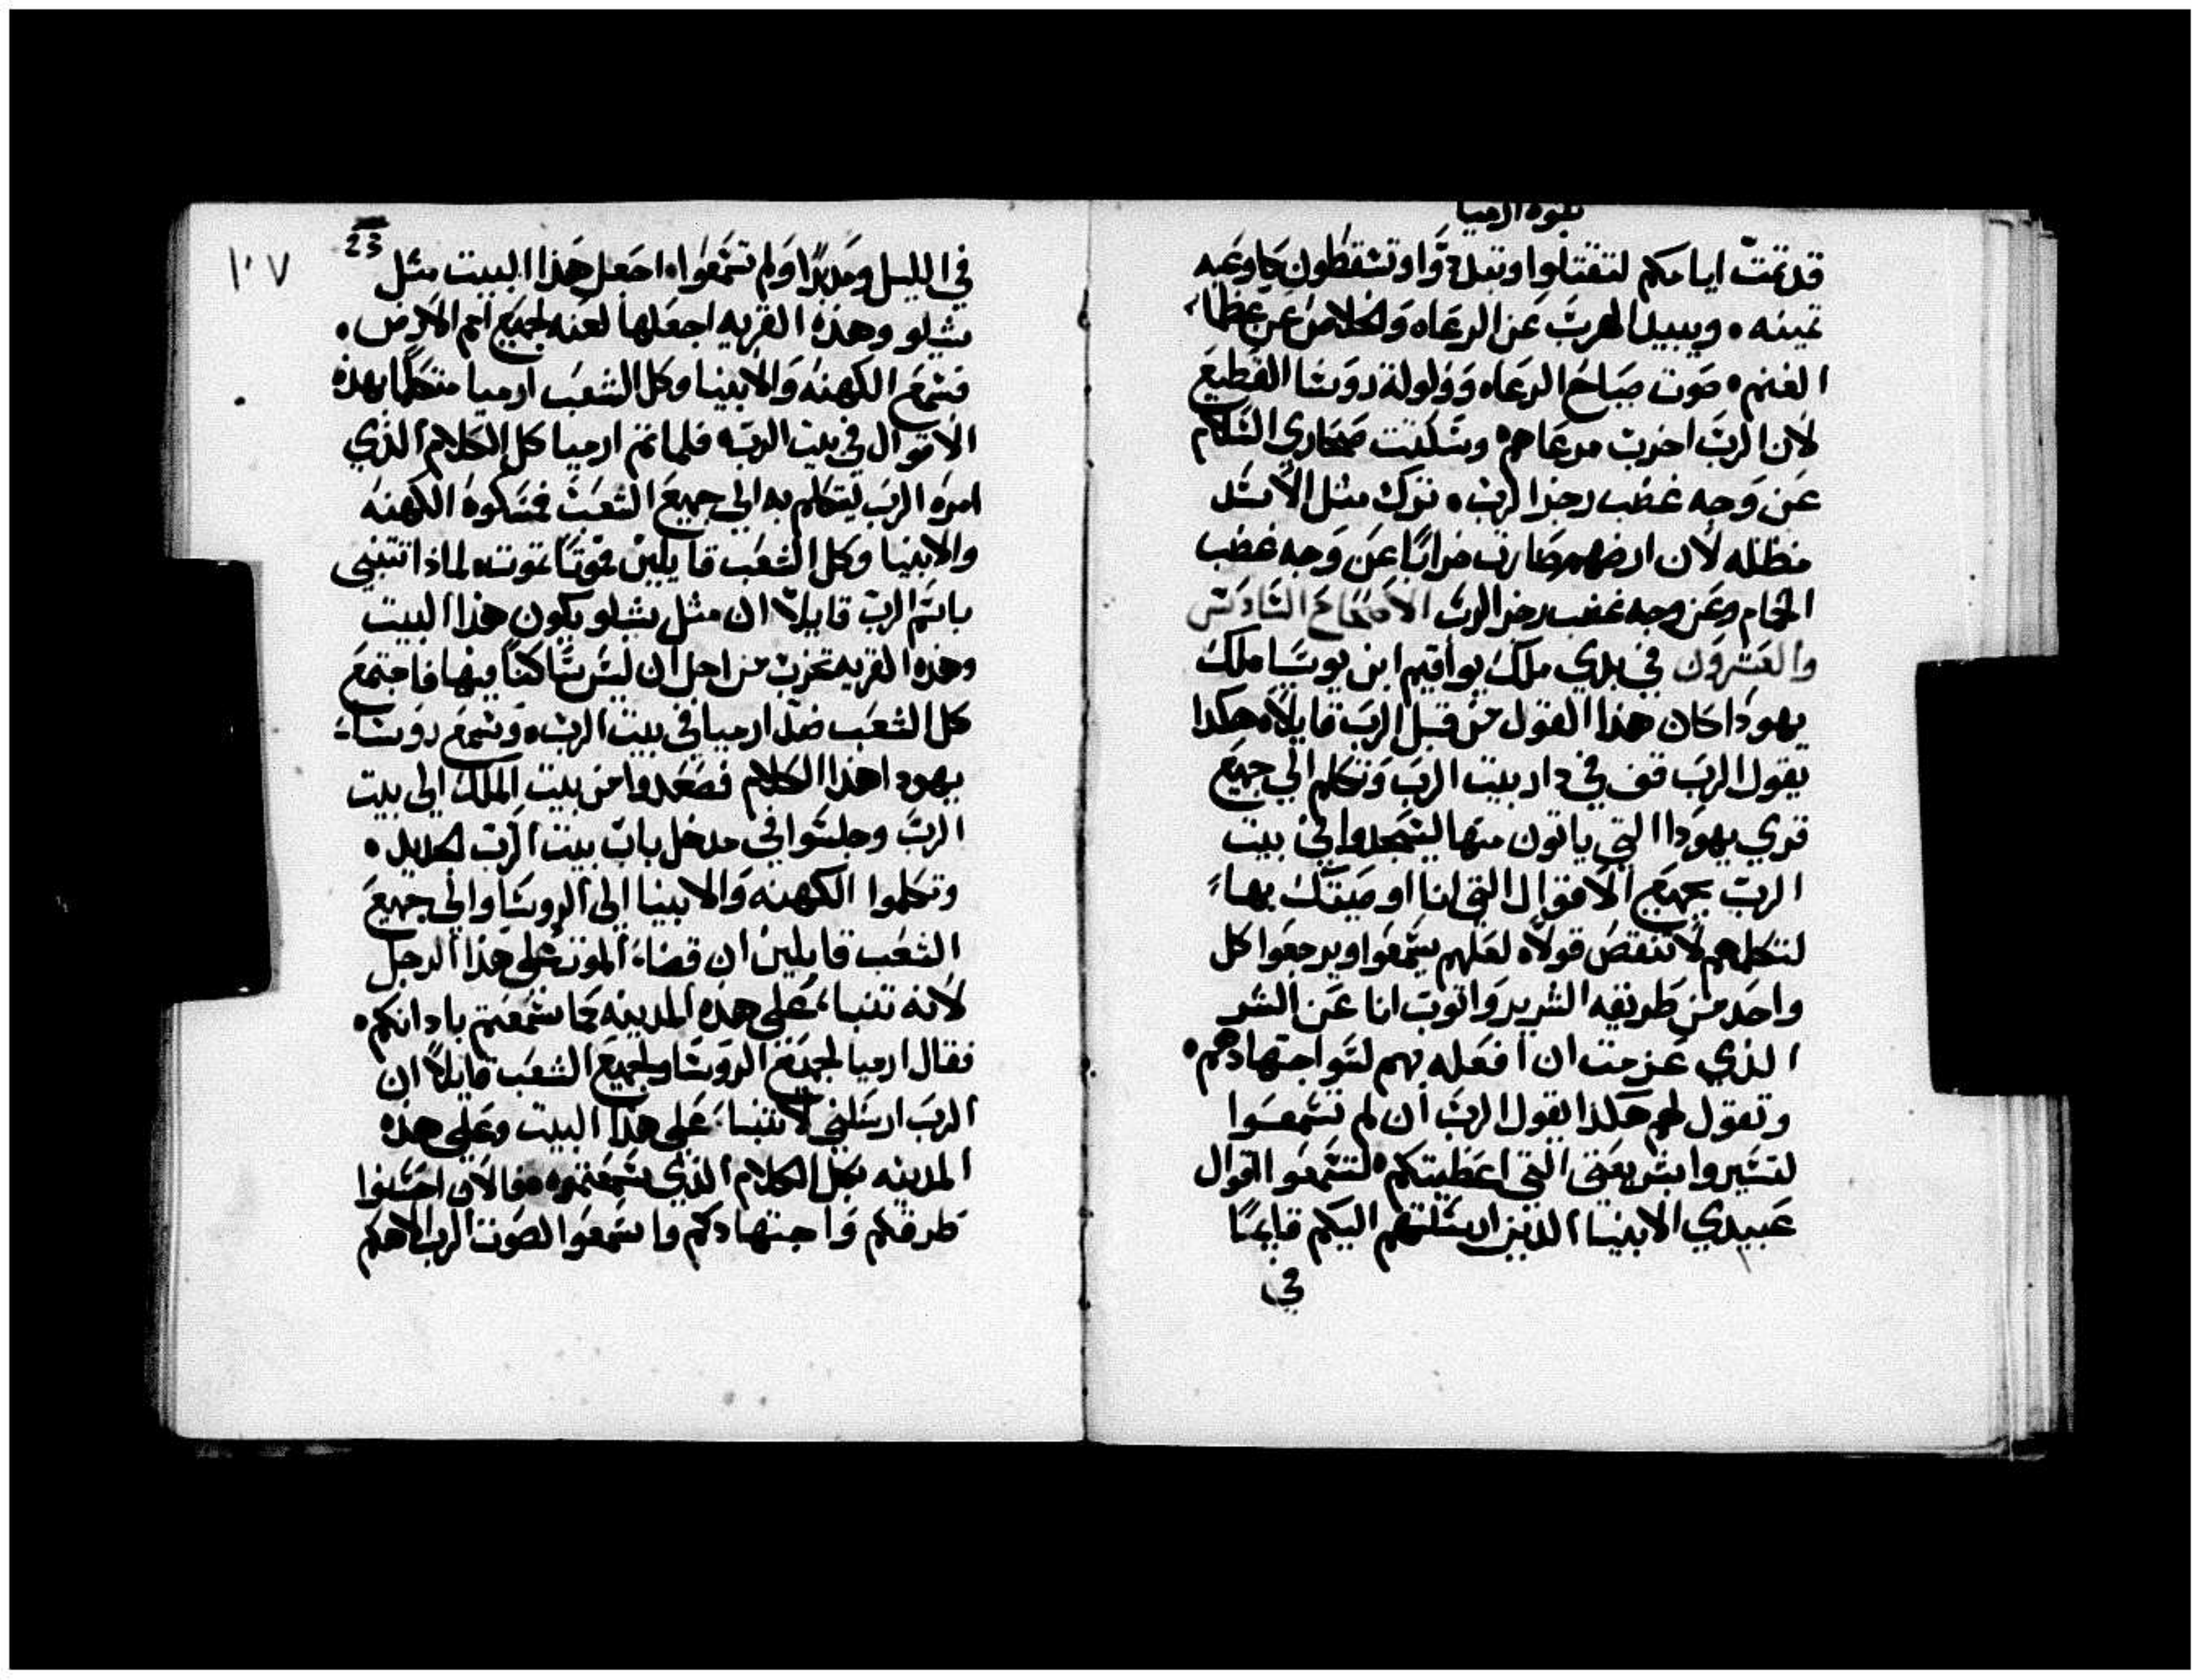 نبوة ارميا
قد تمت ايامكم لتقتلوا وتبددوا وتسقطون كاوعيه
ثمينه • ويبيد الهرب عن الرعاه والخلاص عن عظما
الغنم • صوت صياح الرعاه وولولة روسا القطيع
لان الرب اخرب مرعاهم • وسكتت صحاري السلام
عن وجه غضب رجز الرب • ترك مثل الاسد
مظله لان ارضهم صارت خرابًا عن وجه غضب
الحمام وعن وجه غضب رجز الرب الاصحاح السادس
والعشرون في بدي ملك يواقيم ابن يوسيا ملك
يهودا كان هذا القول من قبل الرب قايلًا • هكدا
يقول الرب قف في دار بيت الرب وتكلم الي جميع
قري يهودا التي ياتون منها ليسجدوا في بيت
الرب بجميع الاقوال التي انا اوصيتك بها
لتكلمهم لا تنقص قولًا • لعلهم يسمعوا ويرجعوا كل
واحد من طريقه الشرير واتوب انا عن الشر
الذي عزمت ان افعله بهم لسو اجتهادهم •
وتقول لهم هكذا يقول الرب ان لم تسمعوا
لتسيروا بشريعتي التي اعطيتكم • لتسمعوا اقوال
عبيدي الانبيا الدين ارسلتهم اليكم قايمًا
في
23
١٠٧
في الليل ومدبرًا ولم تسمعوا • اجعل هذا البيت مثل
شيلو وهذه القريه اجعلها لعنه لجميع امم الارض •
فسمع الكهنه والانبيا وكل الشعب ارميا متكلمًا بهذه
الاقوال في بيت الرب • فلما تم ارميا كل الكلام الذي
امره الرب ليتكلم به الي جميع الشعب فمسكوه الكهنه
والانبيا وكل الشعب قايلين موتًا تموت • لماذا تنبي
باسم الرب قايلًا ان مثل شيلو يكون هذا البيت
وهذه القريه تخرب من اجل ان ليس ساكنًا فيها فاجتمع
كل الشعب ضد ارميا في بيت الرب • وسمع روسا
يهودا هذا الكلام فصعدوا من بيت الملك الي بيت
الرب وجلسوا في مدخل باب بيت الرب الجديد •
وتكلموا الكهنه والانبيا الي الروسا والي جميع
الشعب قايلين ان قضا الموت علي هذا الرجل
لانه تنبا علي هذه المدينه كما سمعتم بادانكم •
فقال ارميا لجميع الروسا ولجميع الشعب قايلًا ان
الرب ارسلني لاتنبا علي هذا البيت وعلي هذه
المدينه بكل الكلام الذي سمعتموه • فالان احسنوا
طرقكم واجتهادكم واسمعوا لصوت الرب الاهكم